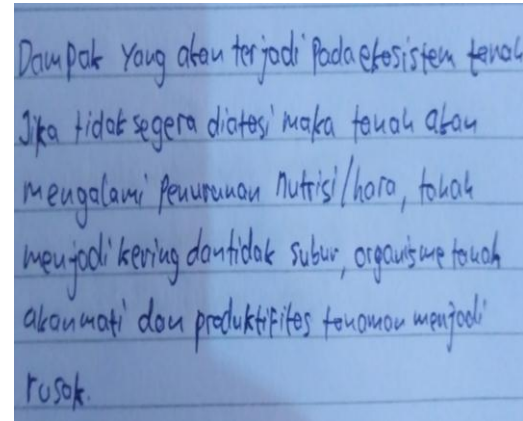 Dampak yang akan terjadi pada ekosistem tanah
Jika tidak segera diatasi maka tanah akan
mengalami penurunan nutrisi/hara, tanah
menjadi kering dan tidak subur, organisme tanah
akan mati dan produktifitas tanaman menjadi
rusak.